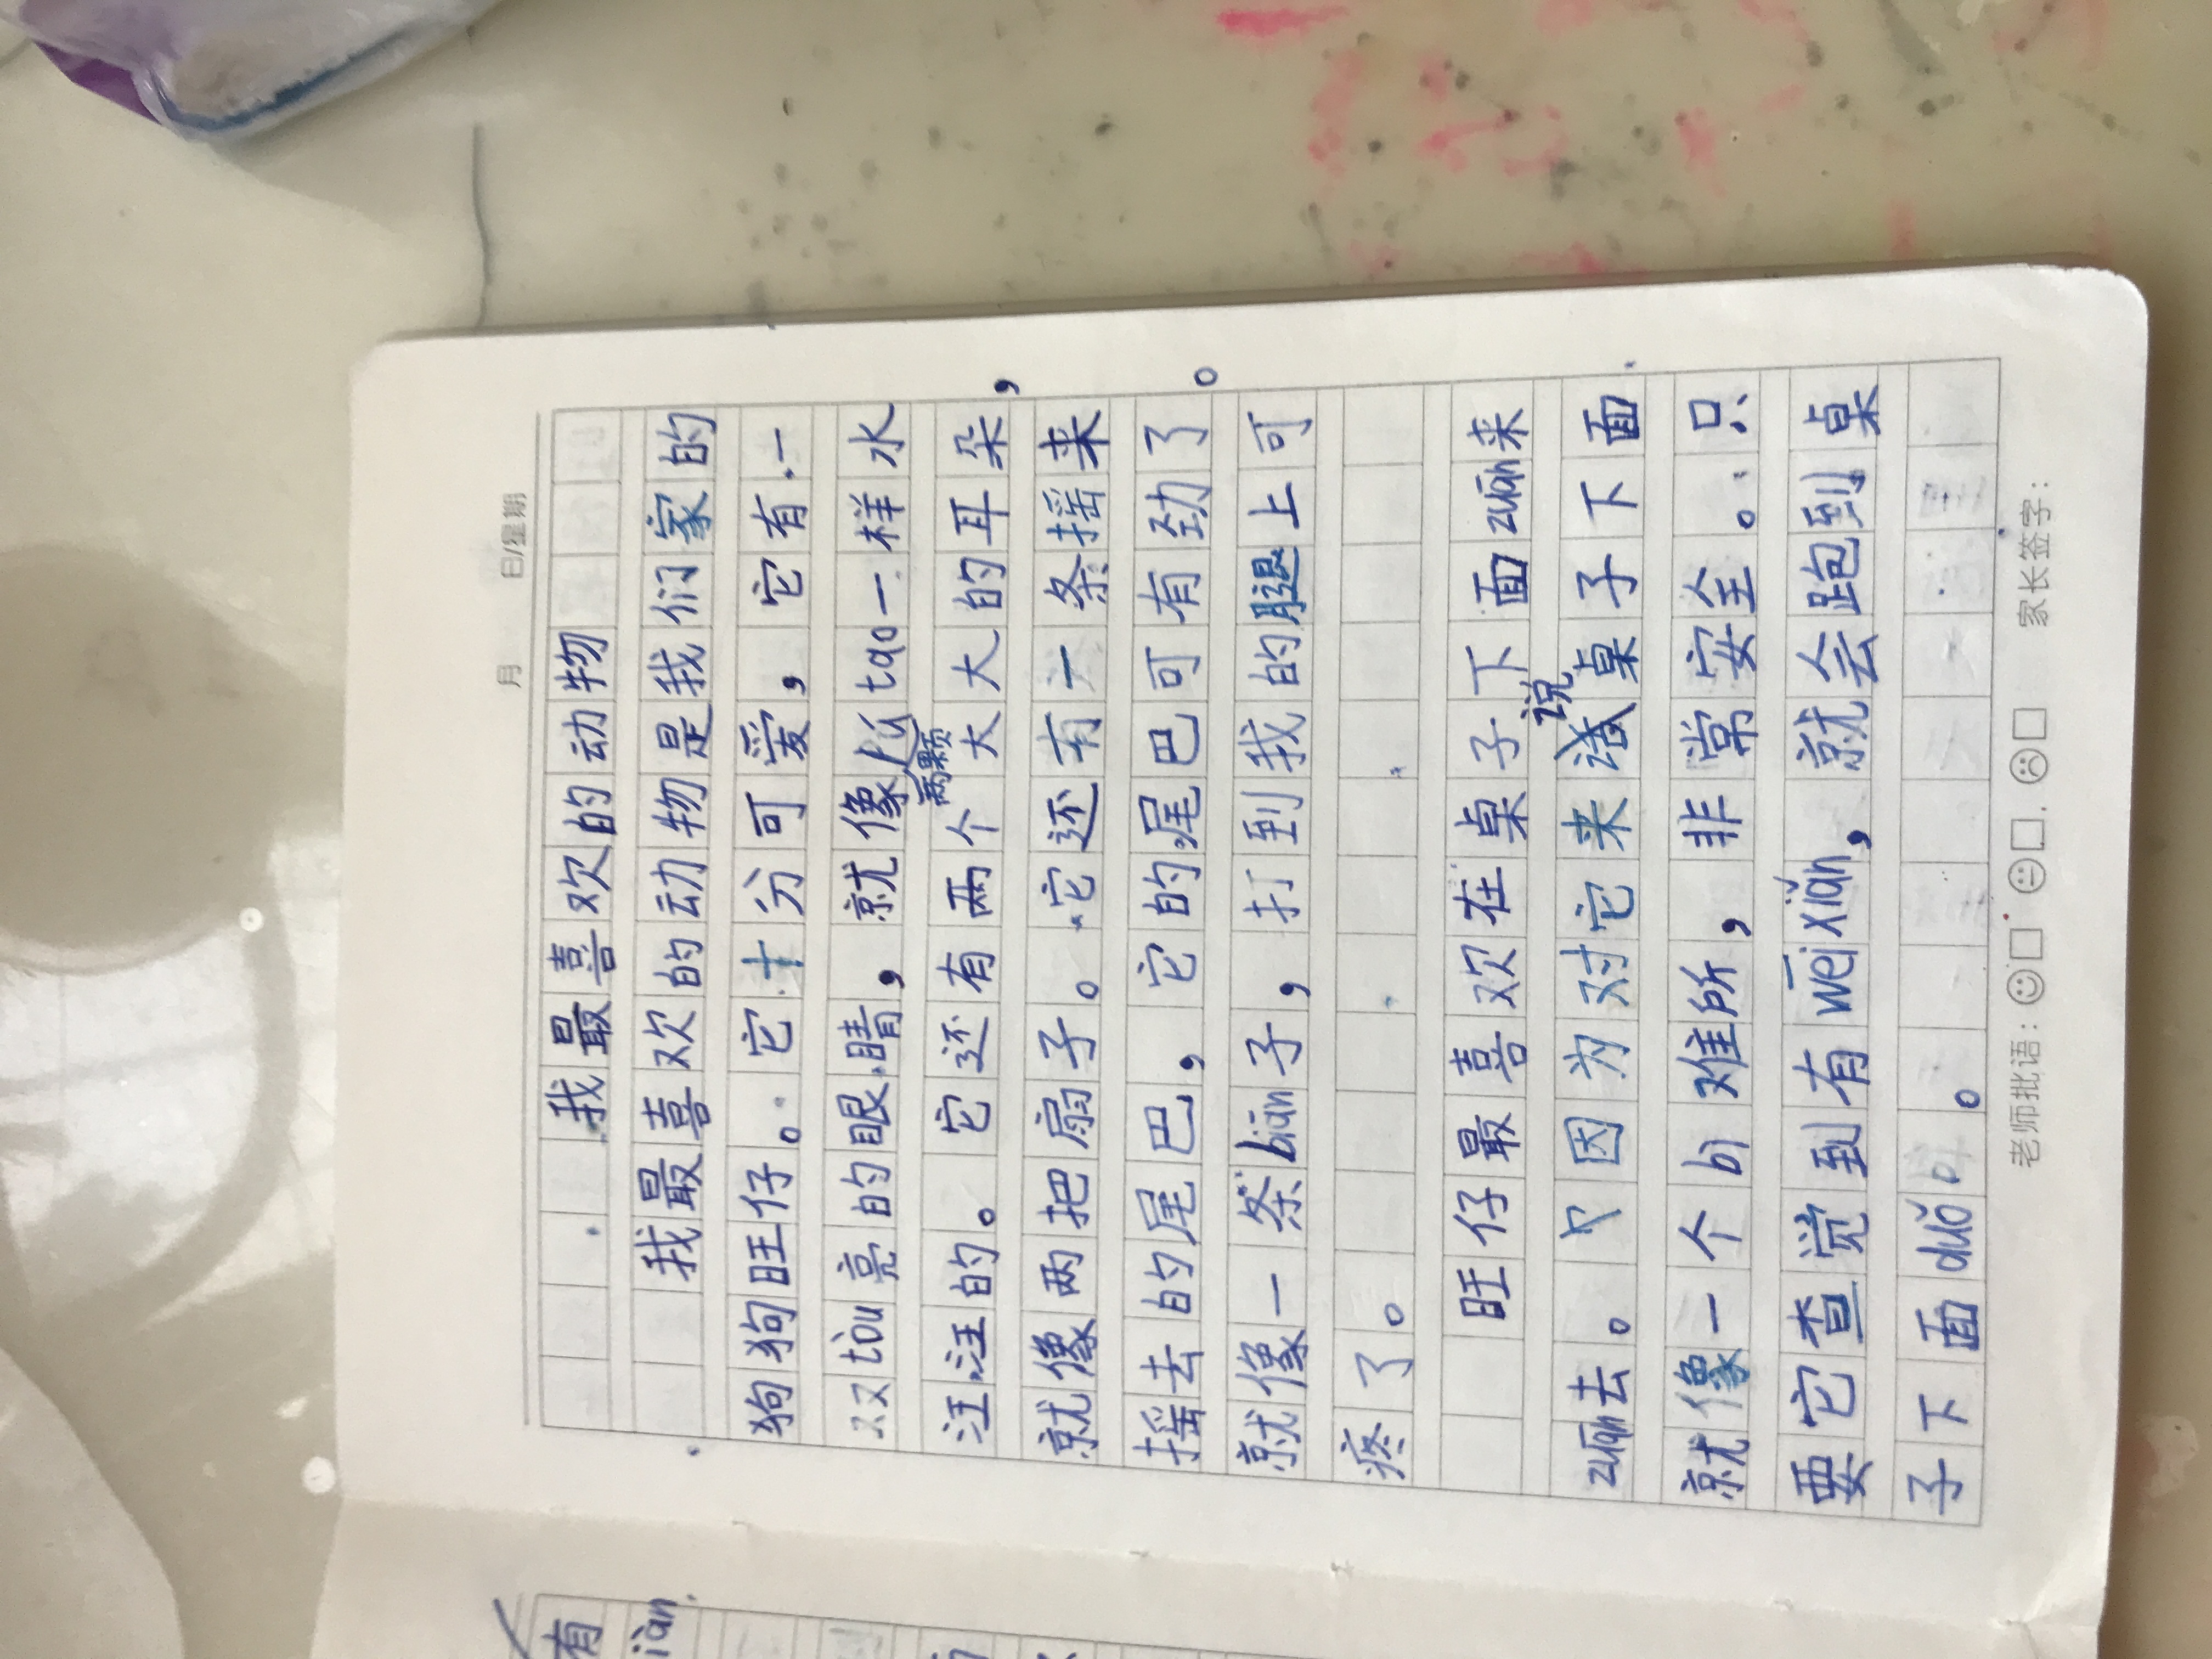 月 日/星期
我最喜欢的动物
我最喜欢的动物是我们家的
狗狗旺仔。它十分可爱，它有一
双tòu亮的眼睛，就像两颗pú tao一样水
汪汪的。它还有两个大大的耳朵，
就像两把扇子。它还有一条摇来
摇去的尾巴，它的尾巴可有劲了。
就像一条biān子，打到我的腿上可
疼了。
旺仔最喜欢在桌子下面zuān来
zuān去。因为对它来说桌子下面
就像一个bì难所，非常安全。只
要它查觉到有wēi xiǎn，就会跑到桌
子下面duǒ。
老师批语： 家长签字：
有
iàn